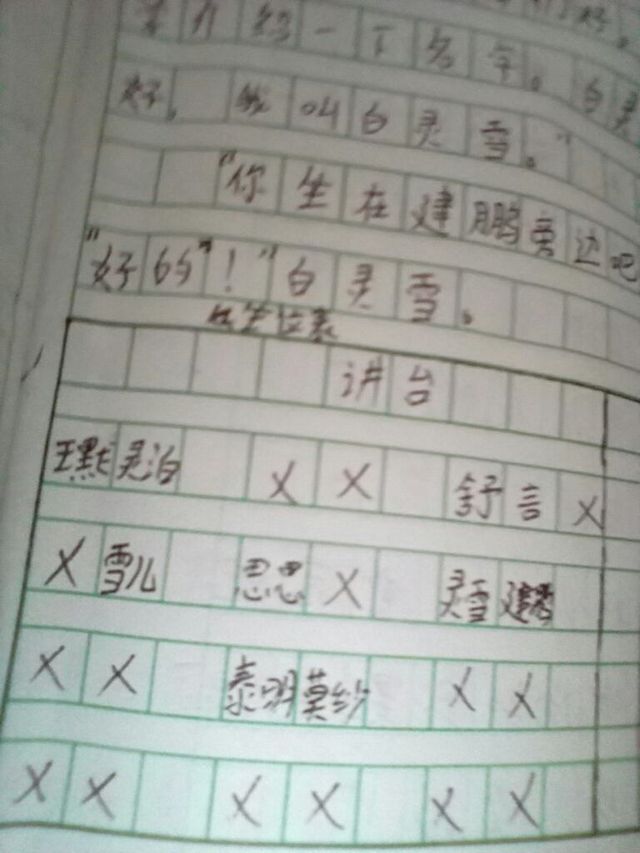 介绍一下名字。白灵
好，我叫白灵雪。"
"你坐在建鹏旁边吧
"好的"！"白灵雪。
坐位表
讲台
王默 灵泊 X X 舒言 X
X 雪儿 思思 X 灵雪 建鹏
X X 泰明 莫纱 X X
X X X X X X